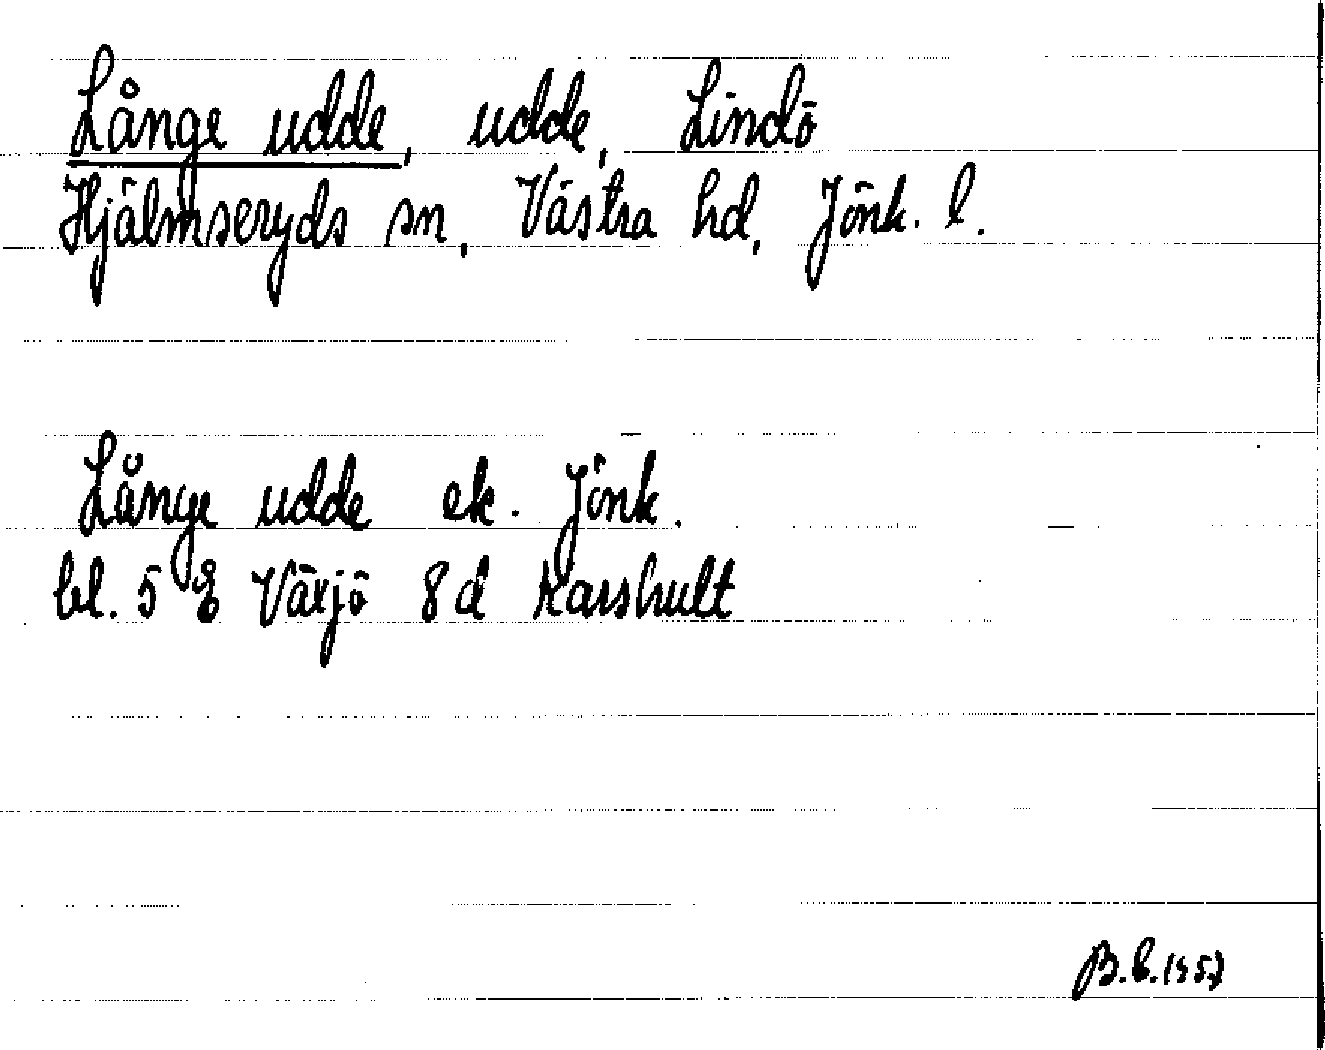 Långe udde, udde, Lindö
Hjälmseryds sn, Västra hd, Jönk. l.
Långe udde ek. Jönk.
bl. 5 E Växjö 8d Karshult
B.E. 1957